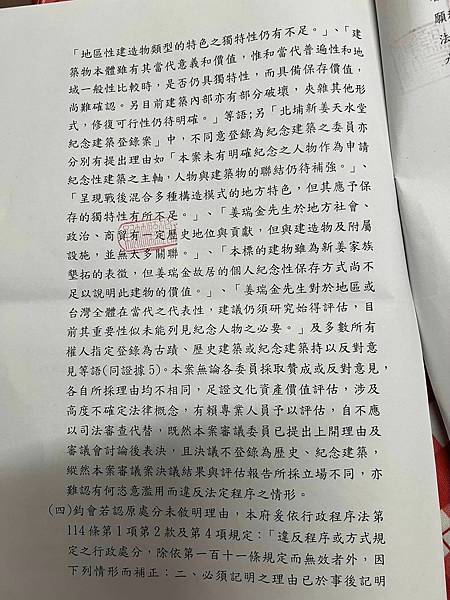 「地區性建造物類型的特色之獨特性仍有不足。」、「建
築物本體雖有其當代意義和價值，惟和當代普遍性和地
域一般性比較時，是否仍具獨特性，而具備保存價值，
尚難確認。另目前建築內部亦有部分破壞，夾雜其他形
式，修復可行性仍待明確。」等語;另「北埔新姜天水堂
紀念建築登錄案」中，不同意登錄為紀念建築之委員亦
分別有提出理由如「本案未有明確紀念之人物作為申請
紀念性建築之主軸，人物與建築物的聯結仍待補強。」、
「呈現戰後混合多種構造模式的地方特色，但其應予保
存的獨特性有所不足。」、「姜瑞金先生於地方社會、
政治、商貿有一定歷史地位與貢獻，但與建造物及附屬
設施，並無太多關聯。」、「本標的建物雖為新姜家族
墾拓的表徵，但姜瑞金故居的個人紀念性保存方式尚不
足以說明此建物的價值。」、「姜瑞金先生對於地區或
台灣全體在當代之代表性，建議仍須研究始得評估，目
前其重要性似未能列見紀念人物之必要。」及多數所有
權人指定登錄為古蹟、歷史建築或紀念建築持以反對意
見等語(同證據5)。本案無論各委員採取贊成或反對意見，
各自所採理由均不相同，足證文化資產價值評估，涉及
高度不確定法律概念，有賴專業人員予以評估，自不應
以司法審查代替，既然本案審議委員已提出上開理由及
審議會討論後表決，且決議不登錄為歷史、紀念建築，
縱然本案審議案決議結果與評估報告所採立場不同，亦
難認有何恣意濫用而違反法定程序之情形。
(四)鈞會若認原處分未敘明理由，本府爰依行政程序法第
114條第1項第2款及第4項規定：「違反程序或方式規
定之行政處分，除依第一百十一條規定而無效者外，因
下列情形而補正：二、必須記明之理由已於事後記明
願
法